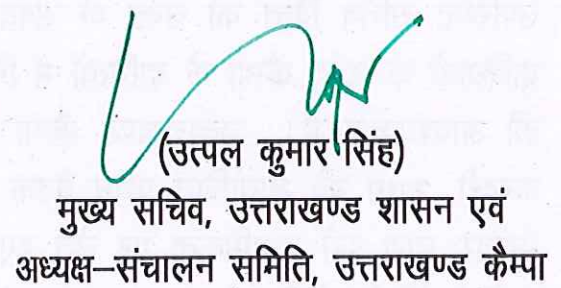 (उत्पल कुमार सिंह)
मुख्य सचिव, उत्तराखण्ड शासन एवं
अध्यक्ष–संचालन समिति, उत्तराखण्ड कैम्पा